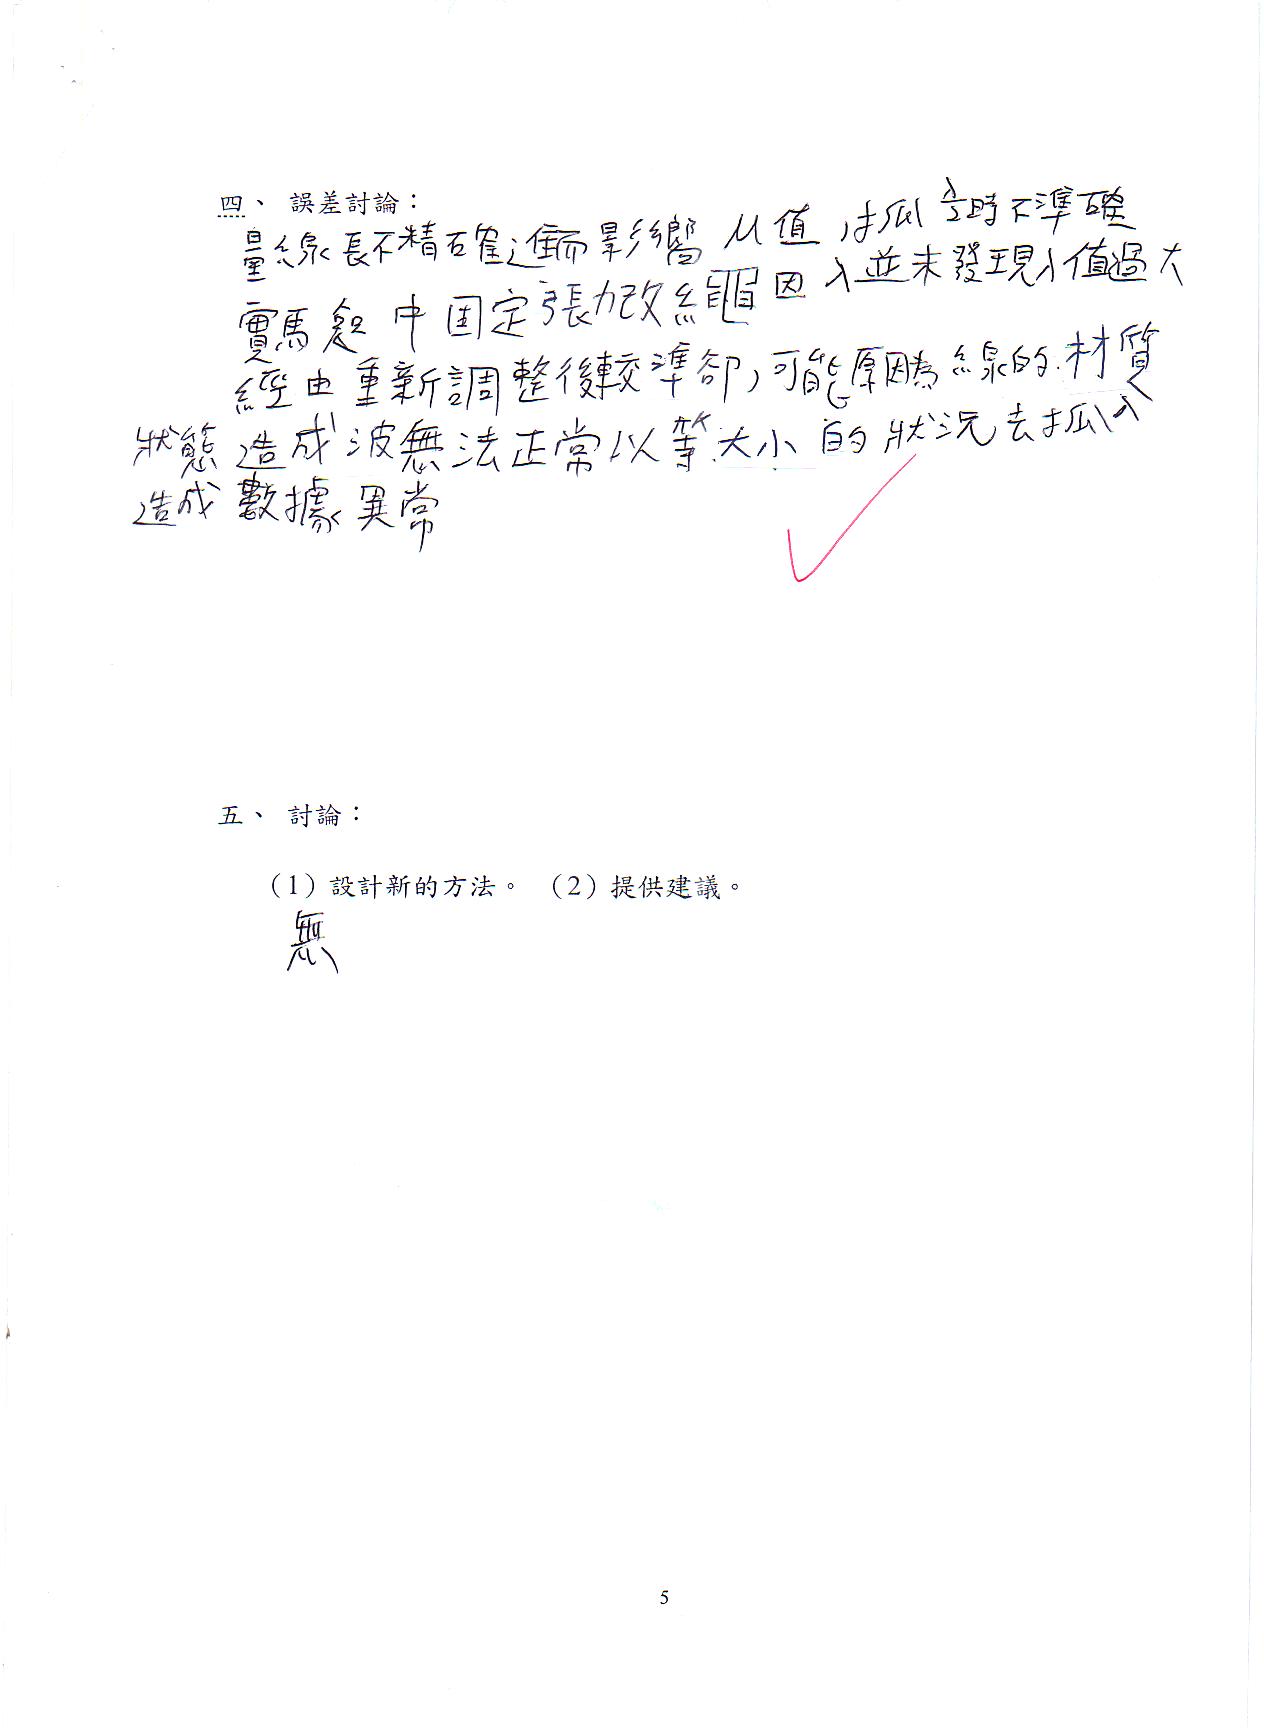 四、 誤差討論：
量線長不精確進而影響 μ值，抓 λ/2 時不準確
實驗 中固定張力改繩 因 λ並未發現λ值過大
經由重新調整後較準卻，可能原因為線的材質
狀態造成波無法正常以等大小的狀況去抓λ
造成數據異常
五、 討論：
（1）設計新的方法。 （2）提供建議。
無
5